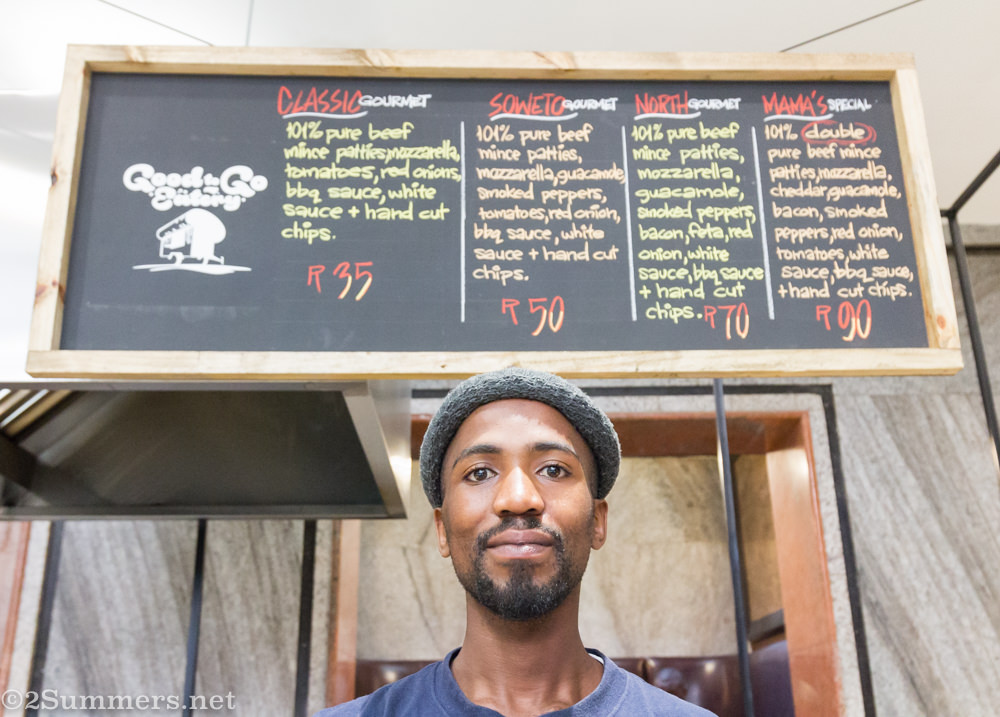 Good to Go
Eatery
CLASSIC GOURMET
101% pure beef
mince patties, mozzarella,
tomatoes, red onions,
bbq sauce, white
sauce + hand cut
chips.
R 35
SOWETO GOURMET
101% pure beef
mince patties,
mozzarella, guacamole,
smoked peppers,
tomatoes, red onion,
bbq sauce, white
sauce + hand cut
chips.
R 50
NORTH GOURMET
101% pure beef
mince patties,
mozzarella,
guacamole,
smoked peppers,
bacon, feta, red
onion, white
sauce, bbq sauce
+ hand cut
chips. R 70
MAMA'S SPECIAL
101% double
pure beef mince
patties, mozzarella,
cheddar, guacamole,
bacon, smoked
peppers, red onion,
tomatoes, white
sauce, bbq sauce,
+ hand cut chips.
R 90
©2Summers.net